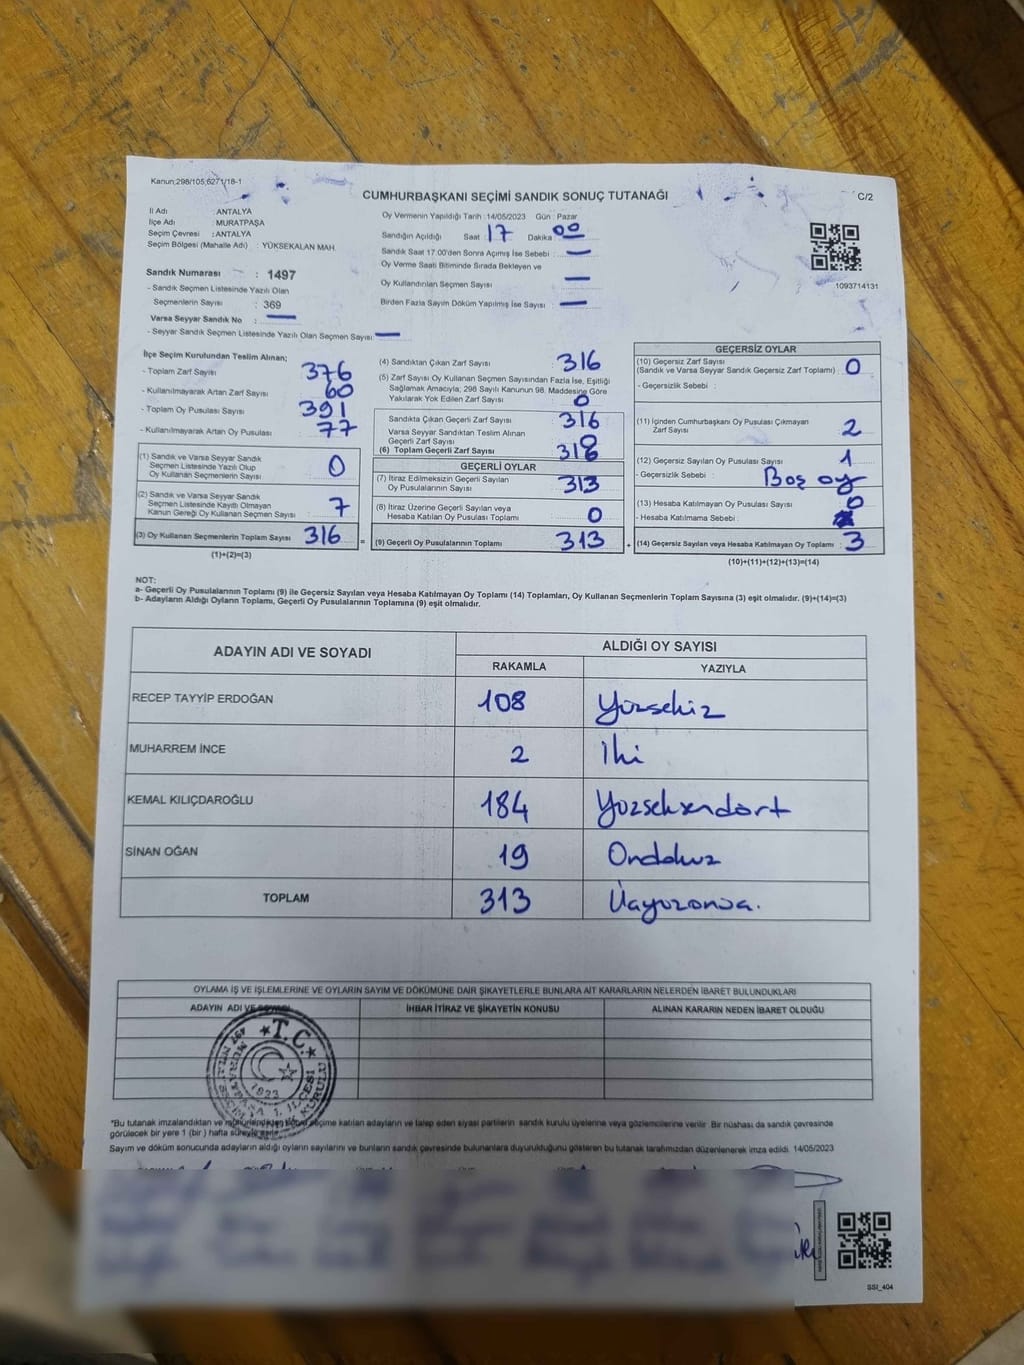 Kanun;298/105,6271/18-1
CUMHURBAŞKANI SEÇİMİ SANDIK SONUÇ TUTANAĞI
C/2
İl Adı : ANTALYA
İlçe Adı : MURATPAŞA
Seçim Çevresi : ANTALYA
Seçim Bölgesi (Mahalle Adı) : YÜKSEKALAN MAH.
Sandık Numarası : 1497
- Sandık Seçmen Listesinde Yazılı Olan
Seçmenlerin Sayısı : 369
Varsa Seyyar Sandık No : —
- Seyyar Sandık Seçmen Listesinde Yazılı Olan Seçmen Sayısı: —
Oy Vermenin Yapıldığı Tarih :14/05/2023 Gün : Pazar
Sandığın Açıldığı Saat : 17 Dakika : 00
Sandık Saat 17.00'den Sonra Açımış İse Sebebi : —
Oy Verme Saati Bitiminde Sırada Bekleyen ve
Oy Kullandırılan Seçmen Sayısı : —
Birden Fazla Sayım Döküm Yapılmış İse Sayısı : —
1093714131
İlçe Seçim Kurulundan Teslim Alınan;
- Toplam Zarf Sayısı : 376
- Kullanılmayarak Artan Zarf Sayısı : 60
- Toplam Oy Pusulası Sayısı : 391
- Kullanılmayarak Artan Oy Pusulası : 77
(1) Sandık ve Varsa Seyyar Sandık
Seçmen Listesinde Yazılı Olup
Oy Kullanan Seçmenlerin Sayısı : 0
(2) Sandık ve Varsa Seyyar Sandık
Seçmen Listesinde Kayıtlı Olmayan
Kanun Gereği Oy Kullanan Seçmen Sayısı : 7
(3) Oy Kullanan Seçmenlerin Toplam Sayısı : 316
(1)+(2)=(3)
=
(4) Sandıktan Çıkan Zarf Sayısı : 316
(5) Zarf Sayısı Oy Kullanan Seçmen Sayısından Fazla İse, Eşitliği
Sağlamak Amacıyla; 298 Sayılı Kanunun 98. Maddesine Göre
Yakılarak Yok Edilen Zarf Sayısı : 0
Sandıkta Çıkan Geçerli Zarf Sayısı : 316
Varsa Seyyar Sandıktan Teslim Alınan
Geçerli Zarf Sayısı :
(6) Toplam Geçerli Zarf Sayısı : 316
GEÇERLİ OYLAR
(7) İtiraz Edilmeksizin Geçerli Sayılan
Oy Pusulalarının Sayısı : 313
(8) İtiraz Üzerine Geçerli Sayılan veya
Hesaba Katılan Oy Pusulası Toplamı : 0
(9) Geçerli Oy Pusulalarının Toplamı : 313
+
GEÇERSİZ OYLAR
(10) Geçersiz Zarf Sayısı
(Sandık ve Varsa Seyyar Sandık Geçersiz Zarf Toplamı) : 0
- Geçersizlik Sebebi :
(11) İçinden Cumhurbaşkanı Oy Pusulası Çıkmayan
Zarf Sayısı : 2
(12) Geçersiz Sayılan Oy Pusulası Sayısı : 1
- Geçersizlik Sebebi : Boş oy
(13) Hesaba Katılmayan Oy Pusulası Sayısı : 0
- Hesaba Katılmama Sebebi :
(14) Geçersiz Sayılan veya Hesaba Katılmayan Oy Toplamı : 3
(10)+(11)+(12)+(13)=(14)
NOT:
a- Geçerli Oy Pusulalarının Toplamı (9) ile Geçersiz Sayılan veya Hesaba Katılmayan Oy Toplamı (14) Toplamları, Oy Kullanan Seçmenlerin Toplam Sayısına (3) eşit olmalıdır. (9)+(14)=(3)
b- Adayların Aldığı Oyların Toplamı, Geçerli Oy Pusulalarının Toplamına (9) eşit olmalıdır.
ADAYIN ADI VE SOYADI
ALDIĞI OY SAYISI
RAKAMLA YAZIYLA
RECEP TAYYİP ERDOĞAN 108 Yüzsekiz
MUHARREM İNCE 2 İki
KEMAL KILIÇDAROĞLU 184 Yüzseksendört
SİNAN OĞAN 19 Ondokuz
TOPLAM 313 Üçyüzonüç.
OYLAMA İŞ VE İŞLEMLERİNE VE OYLARIN SAYIM VE DÖKÜMÜNE DAİR ŞİKAYETLERLE BUNLARA AİT KARARLARIN NELERDEN İBARET BULUNDUKLARI
ADAYIN ADI VE SOYADI İHBAR İTİRAZ VE ŞİKAYETİN KONUSU ALINAN KARARIN NEDEN İBARET OLDUĞU
T.C.
1923
MURATPAŞA 1. İLÇESİ
*Bu tutanak imzalandıktan ve seçime katılan adayların ve talep eden siyasi partilerin sandık kurulu üyelerine veya gözlemcilerine verilir. Bir nüshası da sandık çevresinde
görülecek bir yere 1 (bir) hafta süreyle asılır.
Sayım ve döküm sonucunda adayların aldığı oyların sayılarını ve bunların sandık çevresinde bulunanlara duyurulduğunu gösteren bu tutanak tarafımızdan düzenlenerek imza edildi. 14/05/2023
SSI_404